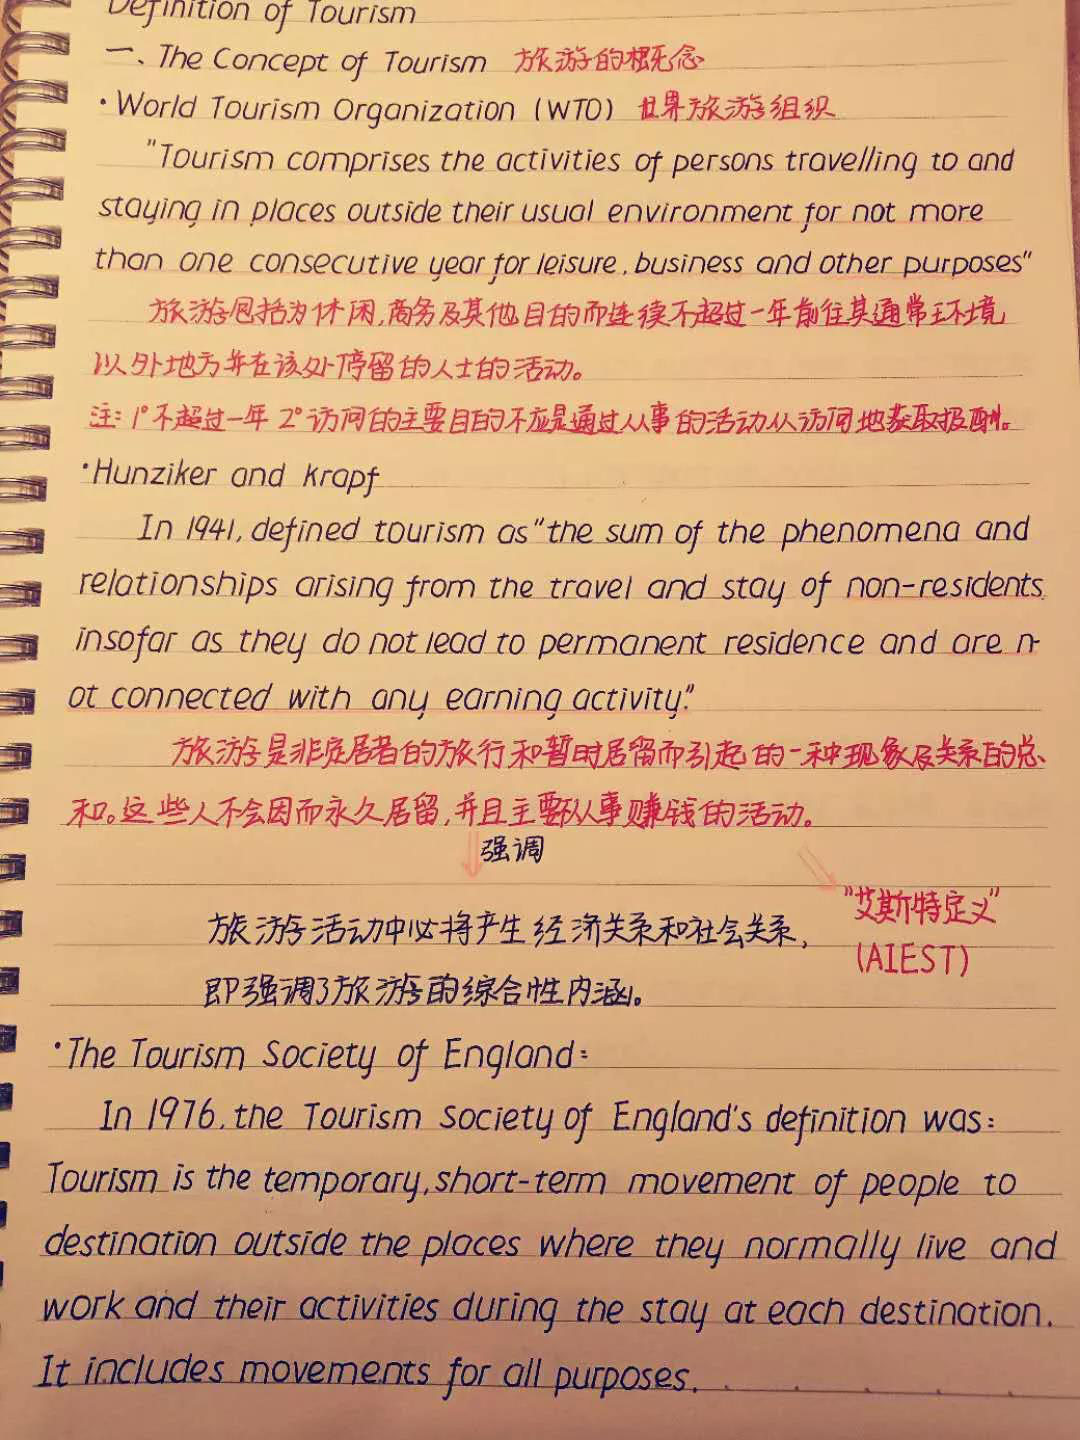 Definition of Tourism
一、The Concept of Tourism 旅游的概念
·World Tourism Organization (WTO) 世界旅游组织
"Tourism comprises the activities of persons travelling to and
staying in places outside their usual environment for not more
than one consecutive year for leisure, business and other purposes"
旅游包括为休闲,商务及其他目的而连续不超过一年前往其通常环境
以外地方并在该处停留的人士的活动。
注:1°不超过一年 2°访问的主要目的不应是通过从事的活动从访问地获取报酬。
·Hunziker and Krapf
In 1941, defined tourism as "the sum of the phenomena and
relationships arising from the travel and stay of non-residents,
insofar as they do not lead to permanent residence and are n-
ot connected with any earning activity."
旅游是非定居者的旅行和暂时居留而引起的一种现象及关系的总
和。这些人不会因而永久居留,并且主要不从事赚钱的活动。
强调
"艾斯特定义"
(AIEST)
旅游活动中必将产生经济关系和社会关系,
即强调了旅游的综合性内涵。
·The Tourism Society of England:
In 1976, the Tourism Society of England's definition was:
Tourism is the temporary, short-term movement of people to
destination outside the places where they normally live and
work and their activities during the stay at each destination.
It includes movements for all purposes.